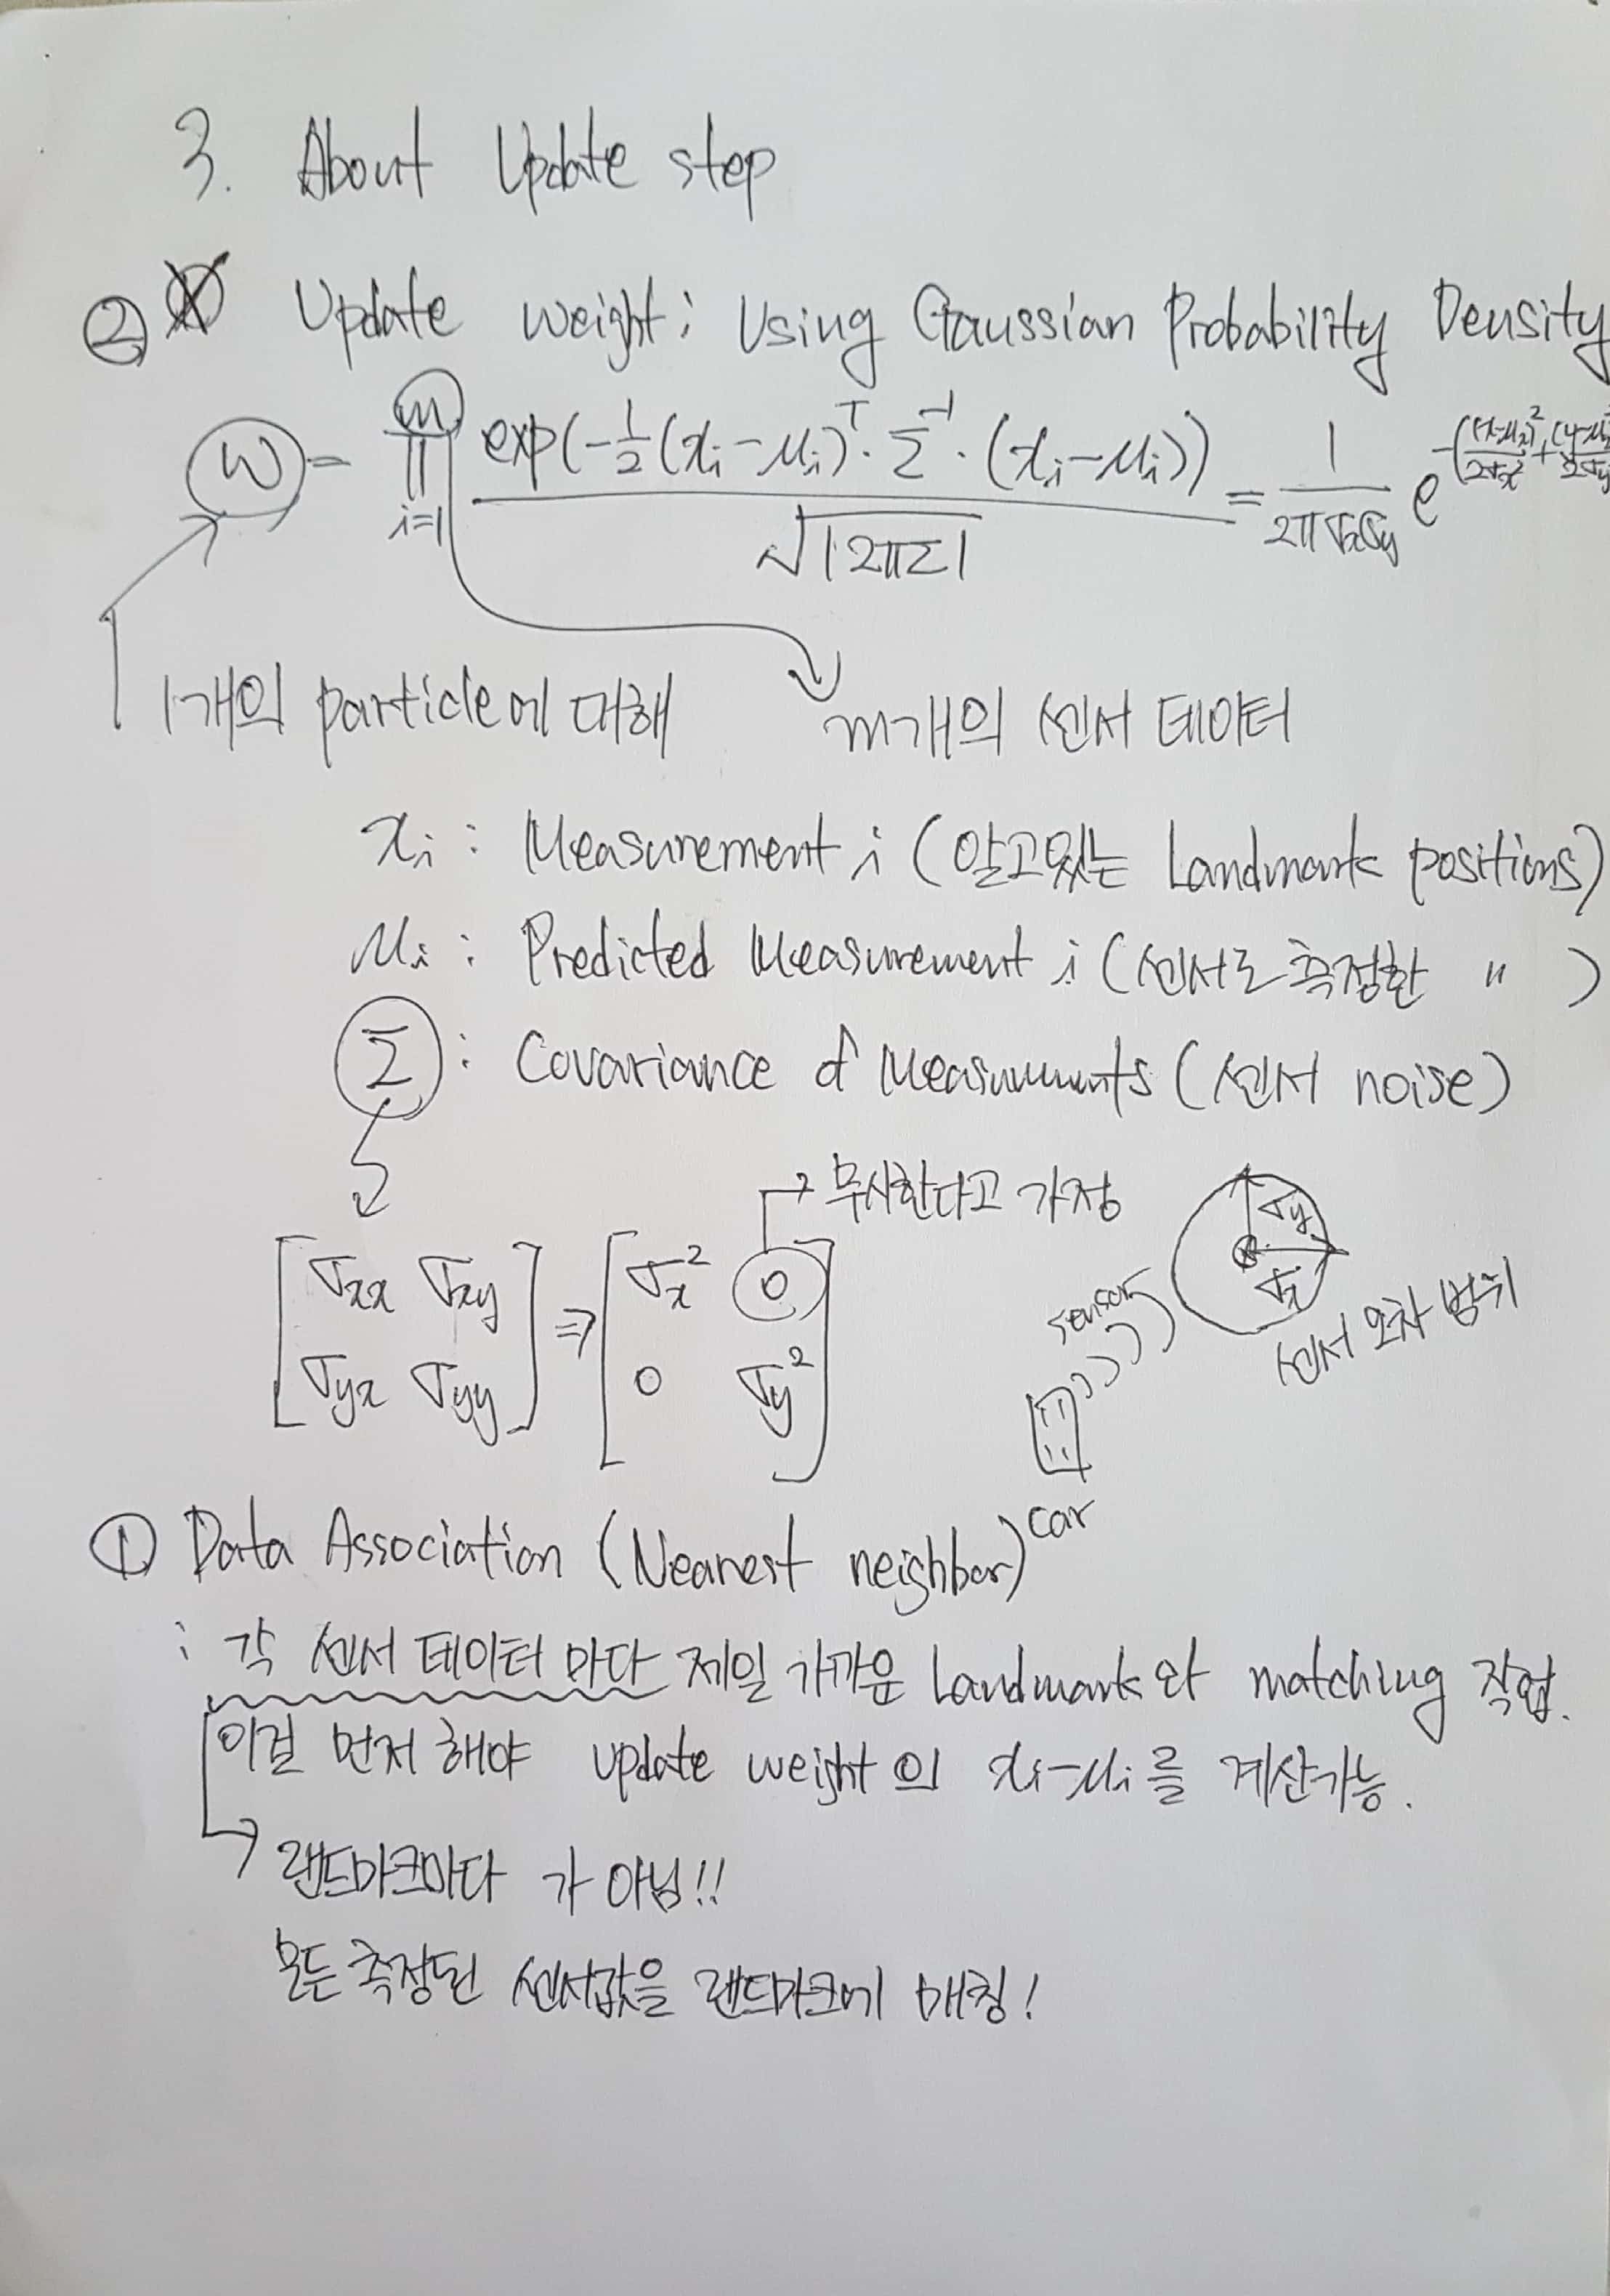 3. About Update step
② Update weight : Using Gaussian Probability Density
W = ∏_{i=1}^{m} exp(-1/2 (x_i - μ_i)^T · Σ^{-1} · (x_i - μ_i)) / √|2πΣ| = 1/(2πσ_xσ_y) e^{-((x-μ_x)²/2σ_x² + (y-μ_y)²/2σ_y²
1개의 particle에 대해
m개의 센서 데이터
x_i : Measurement i (알고있는 Landmark positions)
μ_i : Predicted Measurement i (센서로 측정한 〃 )
Σ : Covariance of Measurements (센서 noise)
무시한다고 가정
[σ_xx σ_xy
σ_yx σ_yy] ⇒ [σ_x² 0
0 σ_y²]
σ_y
σ_x
sensor
센서 오차 범위
car
① Data Association (Nearest neighbor)
: 각 센서 데이터 마다 제일 가까운 Landmark와 matching 작업.
이걸 먼저 해야 update weight의 x_i-μ_i를 계산가능.
랜드마크마다 가 아님!!
모든 측정된 센서값을 랜드마크에 매칭!